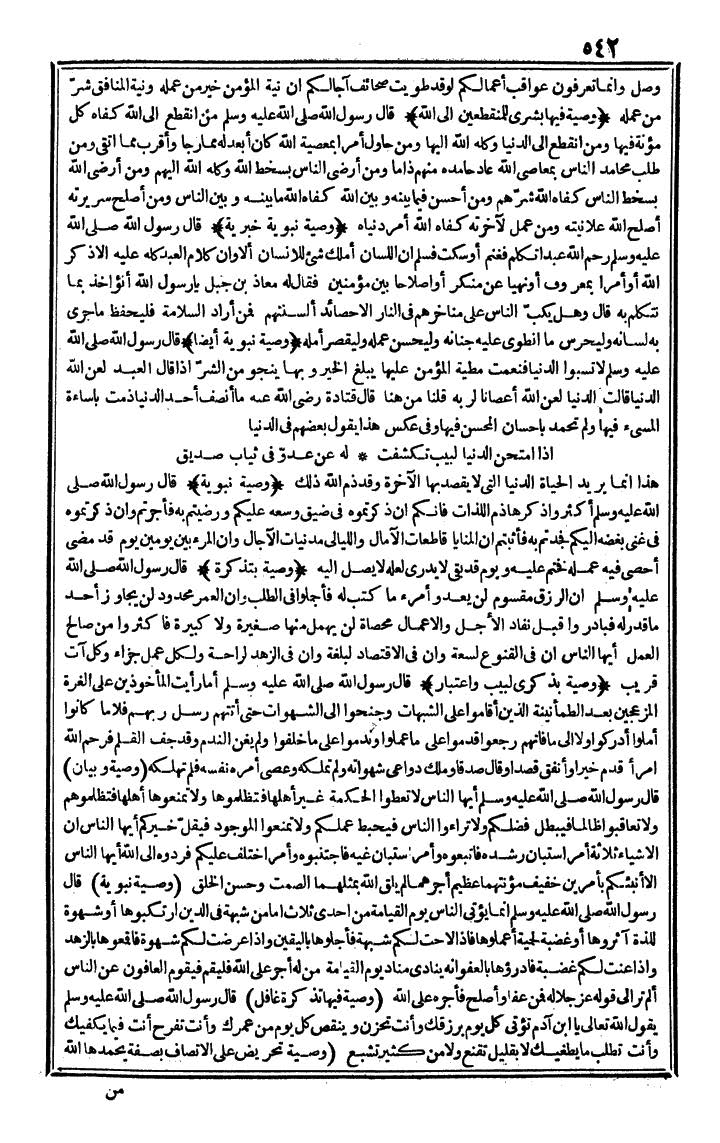 ٥٤٢
وصل وانما تعرفون عواقب أعمالكم لو قد طويت صحائف آجالكم ان نية المؤمن خير من عمله ونية المنافق شرّ
من عمله ﴿وصية فيها بشرى للمنقطعين الى الله﴾ قال رسول الله صلى الله عليه وسلم من انقطع الى الله كفاه كل
مؤنة فيها ومن انقطع الى الدنيا وكله الله اليها ومن حاول أمرا بمعصية الله كان أبعد له مما رجا وأقرب مما اتقى ومن
طلب محامد الناس بمعاصى الله عاد حامده منهم ذاما ومن أرضى الناس بسخط الله وكله الله اليهم ومن أرضى الله
بسخط الناس كفاه الله شرّهم ومن أحسن فيما بينه وبين الله كفاه الله ما بينه وبين الناس ومن أصلح سريرته
أصلح الله علانيته ومن عمل لآخرته كفاه الله أمر دنياه ﴿وصية نبوية خبرية﴾ قال رسول الله صلى الله
عليه وسلم رحم الله عبدا تكلم فغنم أو سكت فسلم ان اللسان أملك شئ للانسان ألا وان كلام العبد كله عليه الا ذكر
الله أو أمرا بمعروف أونهيا عن منكر أو اصلاحا بين مؤمنين فقال له معاذ بن جبل يارسول الله أنؤاخذ بما
نتكلم به قال وهل يكبّ الناس على مناخرهم فى النار الا حصائد ألسنتهم فمن أراد السلامة فليحفظ ماجرى
به لسانه وليحرس ما انطوى عليه جنانه وليحسن عمله وليقصر أمله ﴿وصية نبوية أيضا﴾ قال رسول الله صلى الله
عليه وسلم لا تسبوا الدنيا فنعمت مطية المؤمن عليها يبلغ الخير وبها ينجو من الشرّ اذا قال العبد لعن الله
الدنيا قالت الدنيا لعن الله أعصانا لربه قلنا من هنا قال قتادة رضى الله عنه ما أنصف أحد الدنيا ذمت باساءة
المسىء فيها ولم تحمد باحسان المحسن فيها وفى عكس هذا يقول بعضهم فى الدنيا
اذا امتحن الدنيا لبيب تكشفت * له عن عدوّ فى ثياب صديق
هذا انما يريد الحياة الدنيا التى لا يقصد بها الآخرة وقد ذم الله ذلك ﴿وصية نبوية﴾ قال رسول الله صلى
الله عليه وسلم أكثروا ذكر هاذم اللذات فانكم ان ذكرتموه فى ضيق وسعه عليكم ورضيتم به فأجرتم وان ذكرتموه
فى غنى بغضه اليكم فجدتم به فأثبتم ان المنايا قاطعات الآمال والليالى مدنيات الآجال وان المرء بين يومين يوم قد مضى
أحصى فيه عمله فختم عليه ويوم قد بقى لا يدرى لعله لا يصل اليه ﴿وصية بتذكرة﴾ قال رسول الله صلى الله
عليه وسلم ان الرزق مقسوم لن يعدو أمرء ما كتب له فأجلوا فى الطلب وان العمر محدود لن يجاوز أحد
ما قدر له فبادروا قبل نفاد الأجل والاعمال محصاة لن يهمل منها صغيرة ولا كبيرة فاكثروا من صالح
العمل أيها الناس ان فى القنوع لسعة وان فى الاقتصاد لبلغة وان فى الزهد لراحة ولكل عمل جزاء وكل آت
قريب ﴿وصية بذكرى لبيب واعتبار﴾ قال رسول الله صلى الله عليه وسلم أما رأيت المأخوذين على الغرة
المزعجين بعد الطمأنينة الذين أقاموا على الشبهات وجنحوا الى الشهوات حتى أتتهم رسل ربهم فلا ما كانوا
أملوا أدركوا ولا الى ما فاتهم رجعوا قدموا على ما عملوا وندموا على ما خلفوا ولم يغن الندم وقد جف القلم فرحم الله
امرأ قدم خيرا وأنفق قصدا وقال صدقا وملك دواعى شهواته ولم تملكه وعصى أمره نفسه فلم تهلكه (وصية وبيان)
قال رسول الله صلى الله عليه وسلم أيها الناس لا تعطوا الحكمة غير أهلها فتظلموها ولا تمنعوها أهلها فتظلموهم
ولا تعاقبوا ظالما فيبطل فضلكم ولا تراءوا الناس فيحبط عملكم ولا تمنعوا الموجود فيقلّ خيركم أيها الناس ان
الاشياء ثلاثة أمر استبان رشده فاتبعوه وأمر استبان غيه فاجتنبوه وأمر اختلف عليكم فردوه الى الله أيها الناس
ألا أنبئكم بأمرين خفيف مؤنتهما عظيم أجرهما لم يلق الله بمثلهما الصمت وحسن الخلق (وصية نبوية) قال
رسول الله صلى الله عليه وسلم انما يؤتى الناس يوم القيامة من احدى ثلاث اما من شبهة فى الدين ارتكبوها أو شهوة
للذة آثروها أو غضبة لحية أعملوها فاذا لاحت لكم شبهة فأجلوها باليقين واذا عرضت لكم شهوة فاقعوها بالزهد
واذا عنت لكم غضبة فادرؤها بالعفو انه ينادى مناد يوم القيامة من له أجر على الله فليقم فيقوم العافون عن الناس
ألم تر الى قوله عز جلاله فمن عفا وأصلح فأجره على الله (وصية فيها تذكرة غافل) قال رسول الله صلى الله عليه وسلم
يقول الله تعالى يا ابن آدم تؤتى كل يوم برزقك وأنت تحزن وينقص كل يوم من عمرك وأنت تفرح أنت فيما يكفيك
وأنت تطلب ما يطغيك لا بقليل تقنع ولا من كثير تشبع (وصية تحريض على الاتصاف بصفة يحمدها الله
من